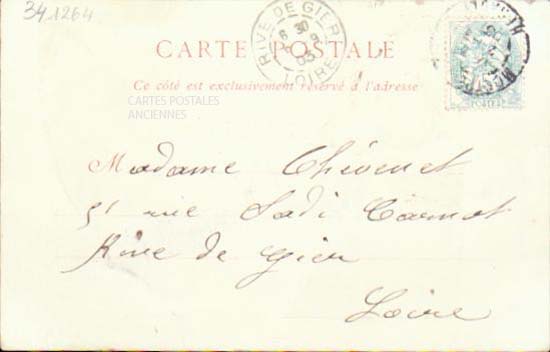 341264
CARTE POSTALE
RIVE DE GIER
6 30
03
LOIRE
Ce côté est exclusivement réservé à l'adresse
CARTES POSTALES
ANCIENNES
Madame Thévenet
51 rue Sadi Carnot
Rive de Gier
Loire